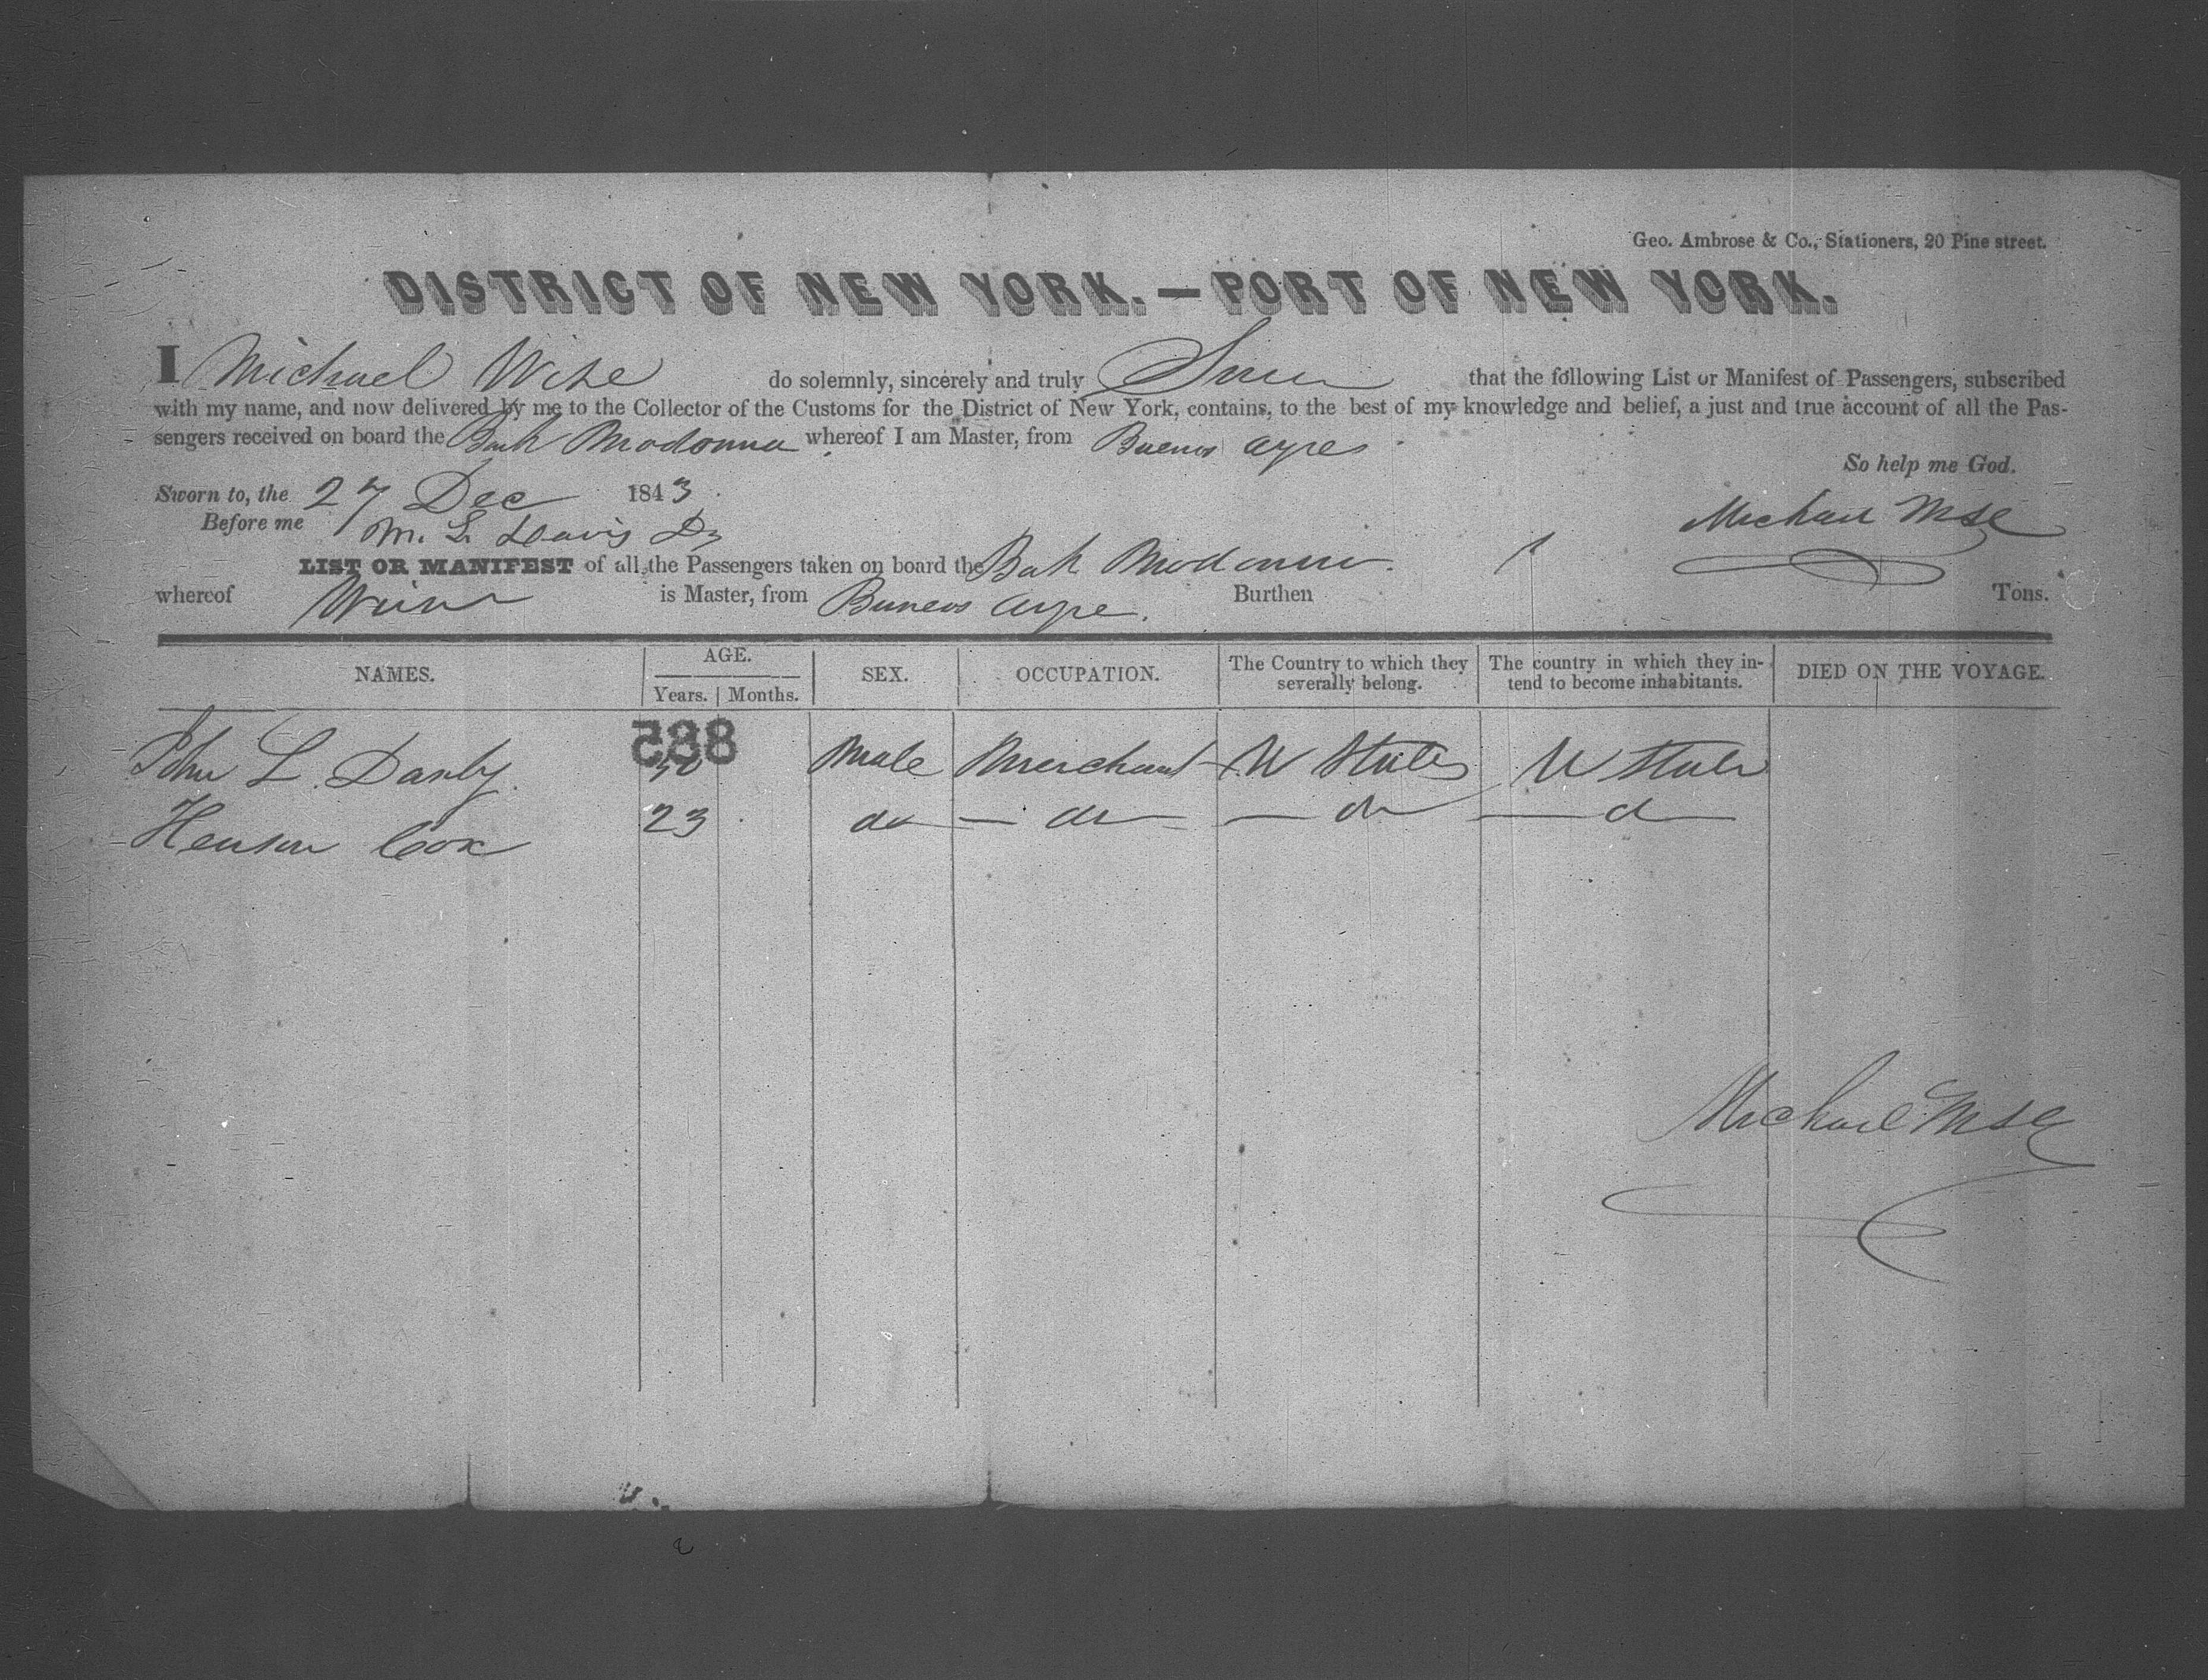 Geo. Ambrose & Co., Stationers, 20 Pine street.
DISTRICT OF NEW YORK.—PORT OF NEW YORK.
I Michael Wise do solemnly, sincerely and truly Swear that the following List or Manifest of Passengers, subscribed
with my name, and now delivered by me to the Collector of the Customs for the District of New York, contains, to the best of my knowledge and belief, a just and true account of all the Pas-
sengers received on board the Bark Madonna whereof I am Master, from Buenos Ayres
So help me God.
Sworn to, the 27 Dec 1843.
Michael Wise
Before me M. L. Davis
LIST OR MANIFEST of all the Passengers taken on board the Bark Madonna.
whereof Wise is Master, from Buneos Ayre. Burthen Tons.
NAMES. AGE. Years. Months. SEX. OCCUPATION. The Country to which they severally belong. The country in which they intend to become inhabitants. DIED ON THE VOYAGE.
588
John L. Darby. Male Merchant U States U States
Henson Cox 23 do — do — do — d
Michael Wise